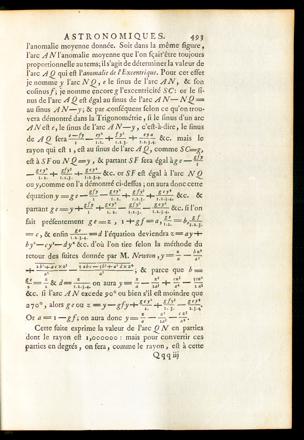 ASTRONOMIQUES. 493
l'anomalie moyenne donnée. Soit dans la même figure,
l'arc AN l'anomalie moyenne que l'on sçait être toujours
proportionnelle au tems; il s'agit de déterminer la valeur de
l'arc AQ qui est l'anomalie de l'Excentrique. Pour cet effet
je nomme y l'arc NQ, e le sinus de l'arc AN, & son
cosinus f; je nomme encore g l'excentricité SC: or le si-
nus de l'arc AQ est égal au sinus de l'arc AN—NQ=
au sinus AN—y; & par conséquent selon ce qu'on trou-
vera démontré dans la Trigonométrie, si le sinus d'un arc
AN est e, le sinus de l'arc AN—y, c'est-à-dire, le sinus
de AQ sera &c. mais le
rayon qui est 1, est au sinus de l'arc AQ, comme SC=g,
est à SF ou NQ=y, & partant SF sera égal à ge—
&c. or SF est égal à l'arc NQ
ou y, comme on l'a démontré ci-dessus; on aura donc cette
équation y=ge— &c. &
partant ge=y+ &c. si l'on
fait présentement ge=z, 1+gf=a,
=c, & enfin =d l'équation deviendra z=ay+
by²—cy³—dy⁴ &c. d'où l'on tire selon la méthode du
retour des suites donnée par M. Newton, y=
; & parce que b=
& d= on aura y=
&c. si l'arc AN excede 90° ou bien s'il est moindre que
270°, alors ge ou z=y—gfy+
Or a=1—gf; on aura donc y=
Cette suite exprime la valeur de l'arc QN en parties
dont le rayon est 1,000000: mais pour convertir ces
parties en degrés, on fera, comme le rayon, est à cette
Qqq iij